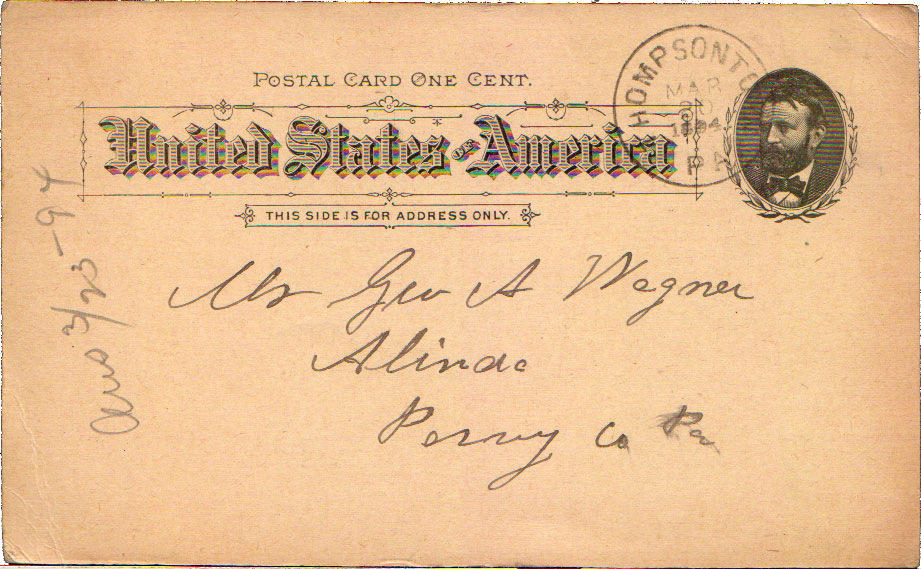 POSTAL CARD ONE CENT.
United States of America
THIS SIDE IS FOR ADDRESS ONLY.
THOMPSONTO
MAR
1894
PA
Mr Geo A Wagner
Alinda
Perry Co Pa
Ans 3/23-94